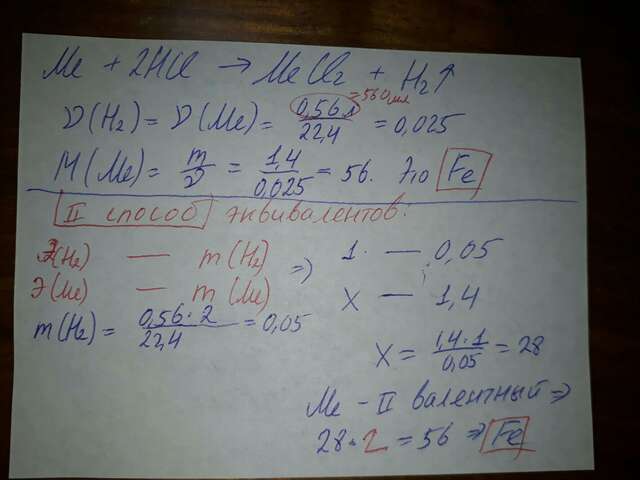 Me + 2HCl → MeCl₂ + H₂↑
ν(H₂) = ν(Me) = 0,56л/22,4 = 0,025
= 560 мл
M(Me) = m/ν = 1,4/0,025 = 56. Это Fe
II способ эквивалентов:
Э(H₂) — m(H₂)
Э(Me) — m(Me)
m(H₂) = 0,56·2/22,4 = 0,05
⇒ 1 — 0,05
X — 1,4
X = 1,4·1/0,05 = 28
Me - II валентный ⇒
28·2 = 56 ⇒ Fe